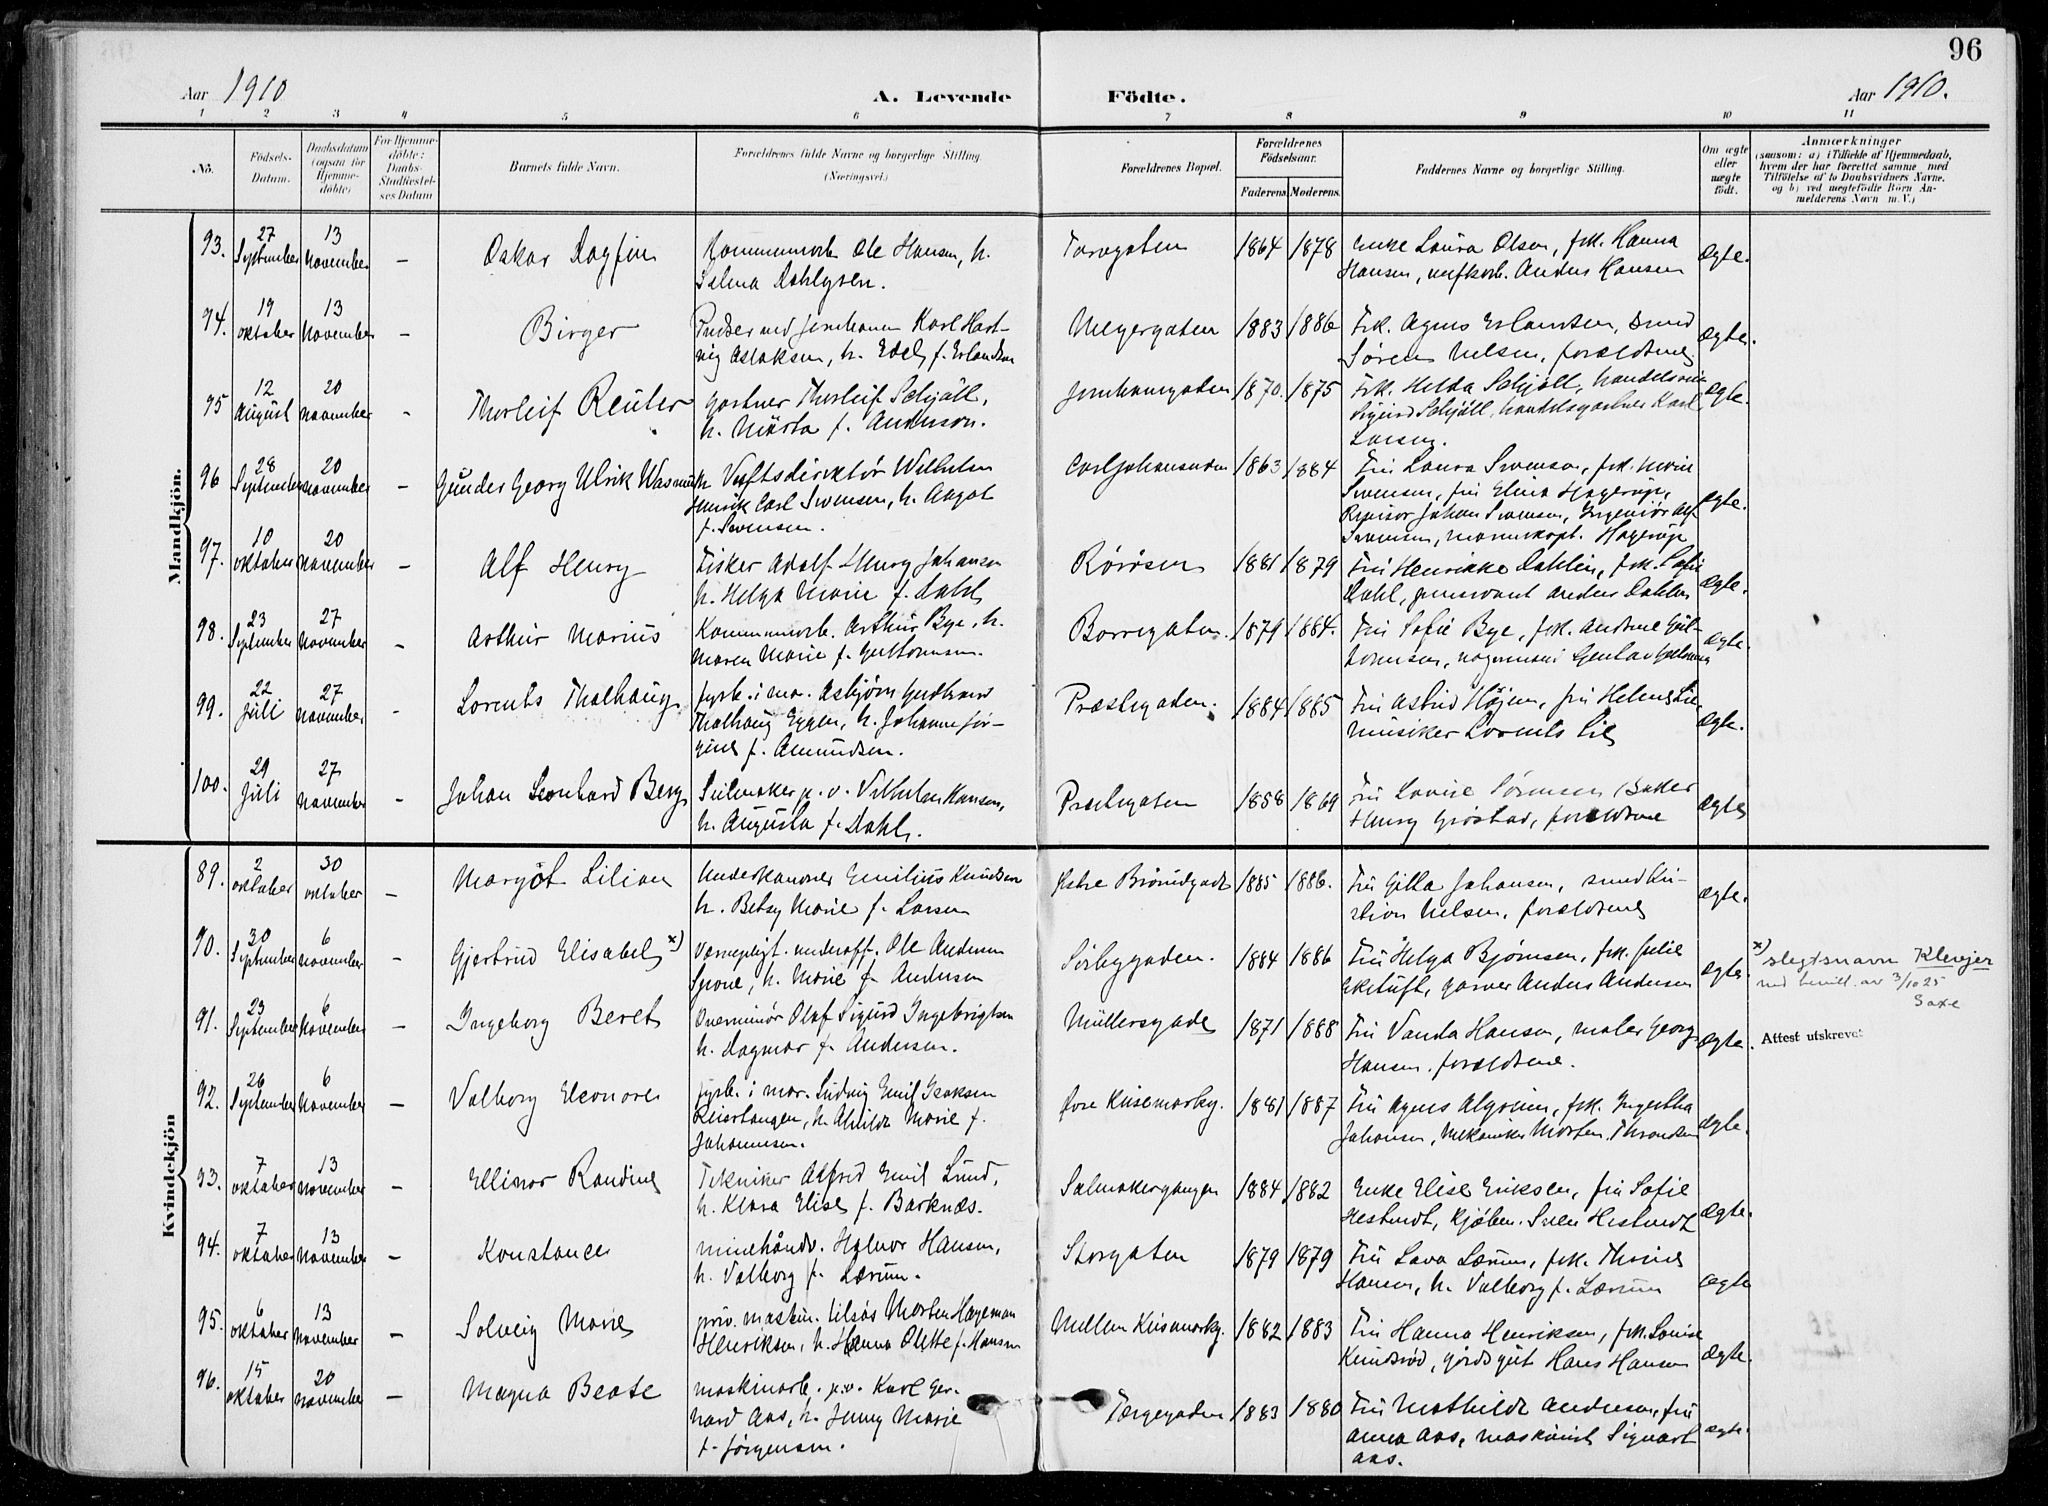 96
Aar 1910
A. Levende
Födte.
Aar 1910.
1 2 3 4 5 6 7 8 9 10 11
No.
Födsels-
Datum.
Daabsdatum
(ogsaa for
Hjemme-
döbte)
For Hjemme-
döbte:
Daabs-
Stadfæstel-
ses Datum
Barnets fulde Navn.
Forældrenes fulde Navne og borgerlige Stilling.
(Næringsvei.)
Forældrenes Bopæl.
Forældrenes
Födselsaar.
Faderens. Moderens.
Faddernes Navne og borgerlige Stilling.
Om ægte
eller
uægte
födt.
Anmærkninger
(saasom: a) i Tilfælde af Hjemmedaab,
hvem der har forrettet samme med
Tilföielse af to Daabsvidners Navne.
og b) ved uægtefödte Börn An-
melderens Navn m. V.)
Mandkjön.
93. 27 September 13 November – Oskar Dagfin
Ole Hansen, h.
Selma Dahlgren.
1864 1878
Enke Laura Olsen, frk. Hanna
Hansen, Hansen
ægte.
94. 19 oktober 13 November – Birger
Karl Hart-
vig Aslaksen, h. Edel f. Erlandsen
Meyergaten 1883 1886
Frk. Agnes Erlandsen, smed
Sören Nelsen, forældrene.
ægte.
95 12 August 20 November - Thorleif Reuter
Gartner Thorleif Schjöll,
h. Märta f. Anderson.
Jernbanegaden 1870. 1875
Frk. Helda Schjöll,
Sigurd Schjöll, handelsgartner Karl
Larsen.
ægte.
96 28 September 20 November – Gunder Georg Ulrik
Verftsdirektör Wilhelm
Henrik Carl Svensen, h. Aagot
f. Svensen.
1863 1884
Fru Laura Svensen, frk.
Svensen, fru Elina Hagerup,
Revisor Johan Svensen, Ingeniör Alf
Svensen, Hagerup
ægte.
97. 10 oktober 20 November – Alf Henry
Fisker Adolf Henry Johansen
h. Helga Marie f. Dahl
Röråsen 1881 1879
Fru Henrikke Dahlin, frk. Sofie
Dahl,
ægte.
98. 23 September 27 November – Arthur Marius
Arthur Bye, h.
Maren Marie f. Guttormsen.
Borregaten. 1879 1884.
Fru Sofie Bye, frk. Andrine Gut-
tormsen,
ægte.
99. 22 Juli 27 November - Lorents Thalhaug
fyrb. i mar. Asbjörn
Thalhaug Eggen, h. Johanne Jör-
gine f. Amundsen.
Præstegaden. 1884 1885
Fru Astrid Höjem, fru Helene Lie,
Musiker Lorents Lie
ægte.
100. 29 Juli 27 November – Johan Leonhard Berg
Seilmaker p. v. Vilhelm Hansen,
h. Augusta f. Dahl.
Præstegaten 1858 1869
Fru Lovise Sörensen,
Henry Gröstad, forældrene
ægte
Kvindekjön
89. 2 oktober 30 oktober – Margot Lilian
Underkanoner Emilius Knudsen
h. Betsy Marie f. Larsen
1885 1886.
Fru Gitta Johansen, smed Kri-
stian Nelsen, forældrene
ægte.
90. 30 September 6 November – Gjertrud Elisabet x)
Værnepligt. underoff. Ole Andersen
h. Marie f. Andersen
Sörbygaden. 1884 1886
Fru Helga Bjørnsen, frk. Julie
Eketuft, garver Anders Andersen
ægte.
x)
slegtsnavn Klevejer
ved bevill. av 3/10 25
Saxe
91. 23 September 6 November – Ingeborg Beret
Overminör Olaf Sigurd Ingebrigtsen
h. Dagmar f. Andersen.
Müllersgade 1871 1888
Fru Vanda Hansen, maler Georg
Hansen, forældrene.
ægte.
Attest utskrevet
92. 26 September 6 November – Valborg Eleonore
fyrb. i mar. Ludvig Emil Isaksen
Reiertangen, h. Alvilde Marie f.
Johannesen.
1881 1887
Fru Agnes frk. Ingertha
Johansen, Mekaniker Morten Throndsen
ægte.
93. 7 oktober 13 November – Ellinor Randine
Tekniker Alfred Emil Lund,
h. Klara Elise f. Barknæs.
Salmakergangen 1884 1882
Enke Elise Eriksen, fru Sofie
Hestmdt, kjöbm.
ægte.
94. 7 oktober 13 November – Konstance
minehåndv. Halvor Hansen,
h. Valborg f. Lærum.
Storgaten 1879 1879
Fru Lava Lærum, frk. Thrine
Hansen, h. Valborg f. Lærum
ægte
95. 6 oktober 13 November – Solveig Marie
priv. maskin. tilsås Morten Hageman
Henriksen, h. Hanna Olette f. Hansen
1882 1883
Fru Hanna Henriksen, frk. Lovise
Knudsröd, Hans Hansen
ægte.
96. 15 oktober 20 November – Magna Beate
maskinarb. p.v. Karl Ger-
hard Aas, h. Jenny Marie
f. Jørgensen.
Færgegaden 1883 1880
Fru Mathilde Andersen, fru
Anna Aas, maskinist Sigvart
Aas.
ægte.